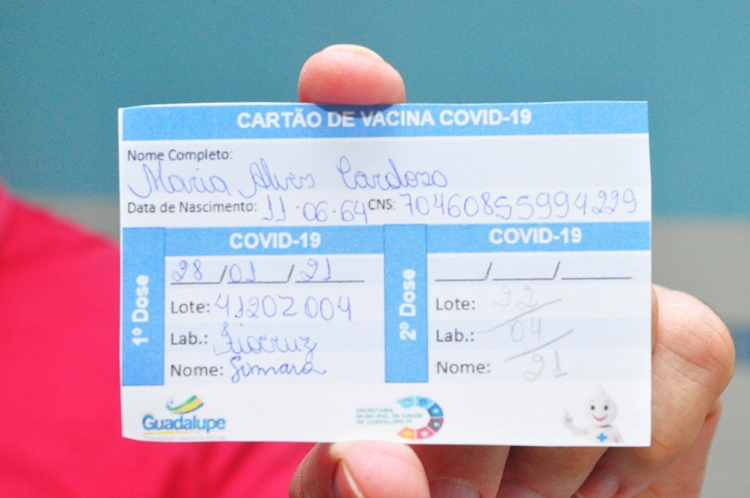 CARTÃO DE VACINA COVID-19
Nome Completo:
Maria Alves Cardoso
Data de Nascimento: 11-06-64 CNS: 704608559994229
1ª Dose
COVID-19
28/01/21
Lote: 4120Z004
Lab.: Fiocruz
Nome: Gimara
2ª Dose
COVID-19
__/__/__
Lote: 22
Lab.: 04
Nome: 21
Guadalupe
SECRETARIA
MUNICIPAL DE SAÚDE
DE GUADALUPE-PI